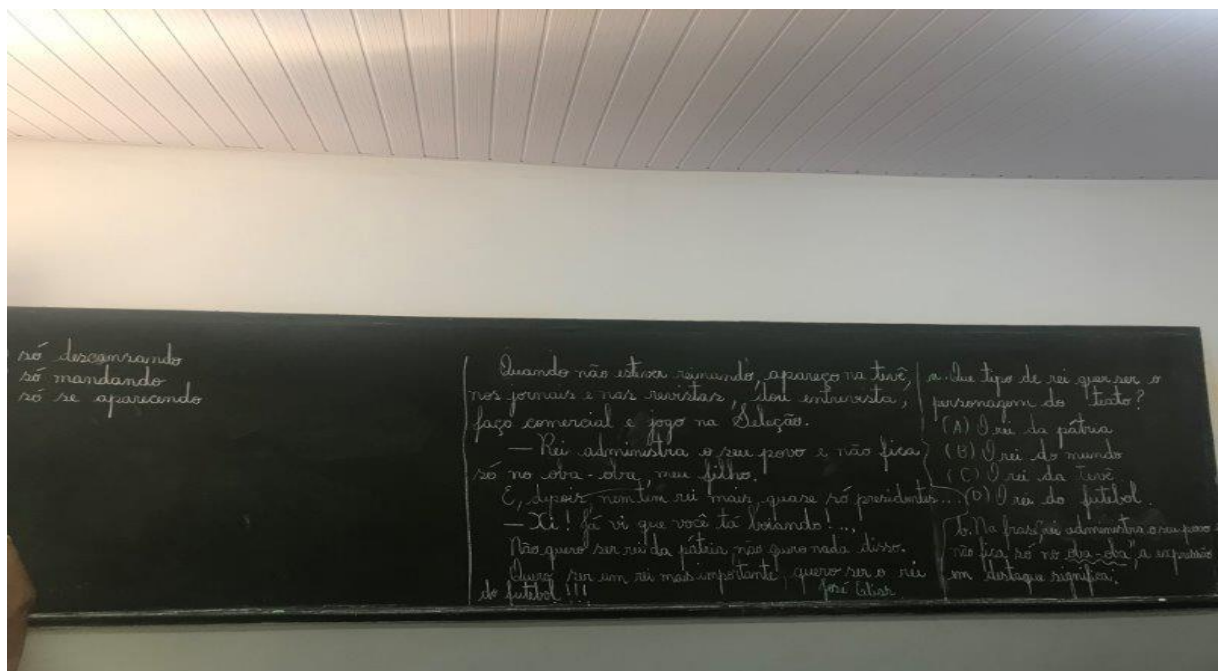 só descansando
só mandando
só se aparecendo
Quando não estiver reinando, apareço na tevê,
nos jornais e nas revistas, dou entrevista,
faço comercial e jogo na Seleção.
— Rei administra o seu povo e não fica
só no oba-oba, meu filho.
E, depois, nem tem rei mais, quase só presidentes...
— Xi! Já vi que você tá boiando!...
Não quero ser rei da pátria não quero nada disso.
Quero ser um rei mais importante, quero ser o rei
do futebol!!!
José Elias
a. Que tipo de rei quer ser o
personagem do texto?
(A) O rei da pátria
(B) O rei do mundo
(C) O rei da tevê
(D) O rei do futebol.
b. Na frase, rei administra o seu povo e
não fica só no oba-oba", a expressão
em destaque significa: